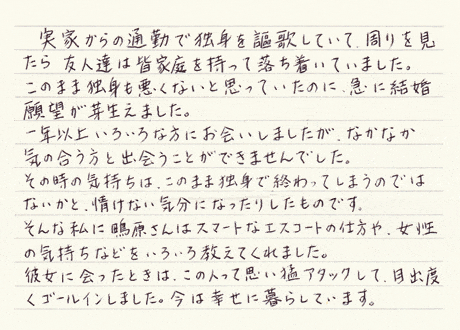 実家からの通勤で独身を謳歌していて、周りを見
たら友人達は皆家庭を持って落ち着いていました。
このまま独身も悪くないと思っていたのに、急に結婚
願望が芽生えました。
一年以上いろいろな方にお会いしましたが、なかなか
気の合う方と出会うことができませんでした。
その時の気持ちは、このまま独身で終わってしまうのでは
ないかと、情けない気分になったりしたものです。
そんな私に鴫原さんはスマートなエスコートの仕方や、女性
の気持ちなどをいろいろ教えてくれました。
彼女に会ったときは、この人って思い猛アタックして、目出度
くゴールインしました。今は幸せに暮らしています。